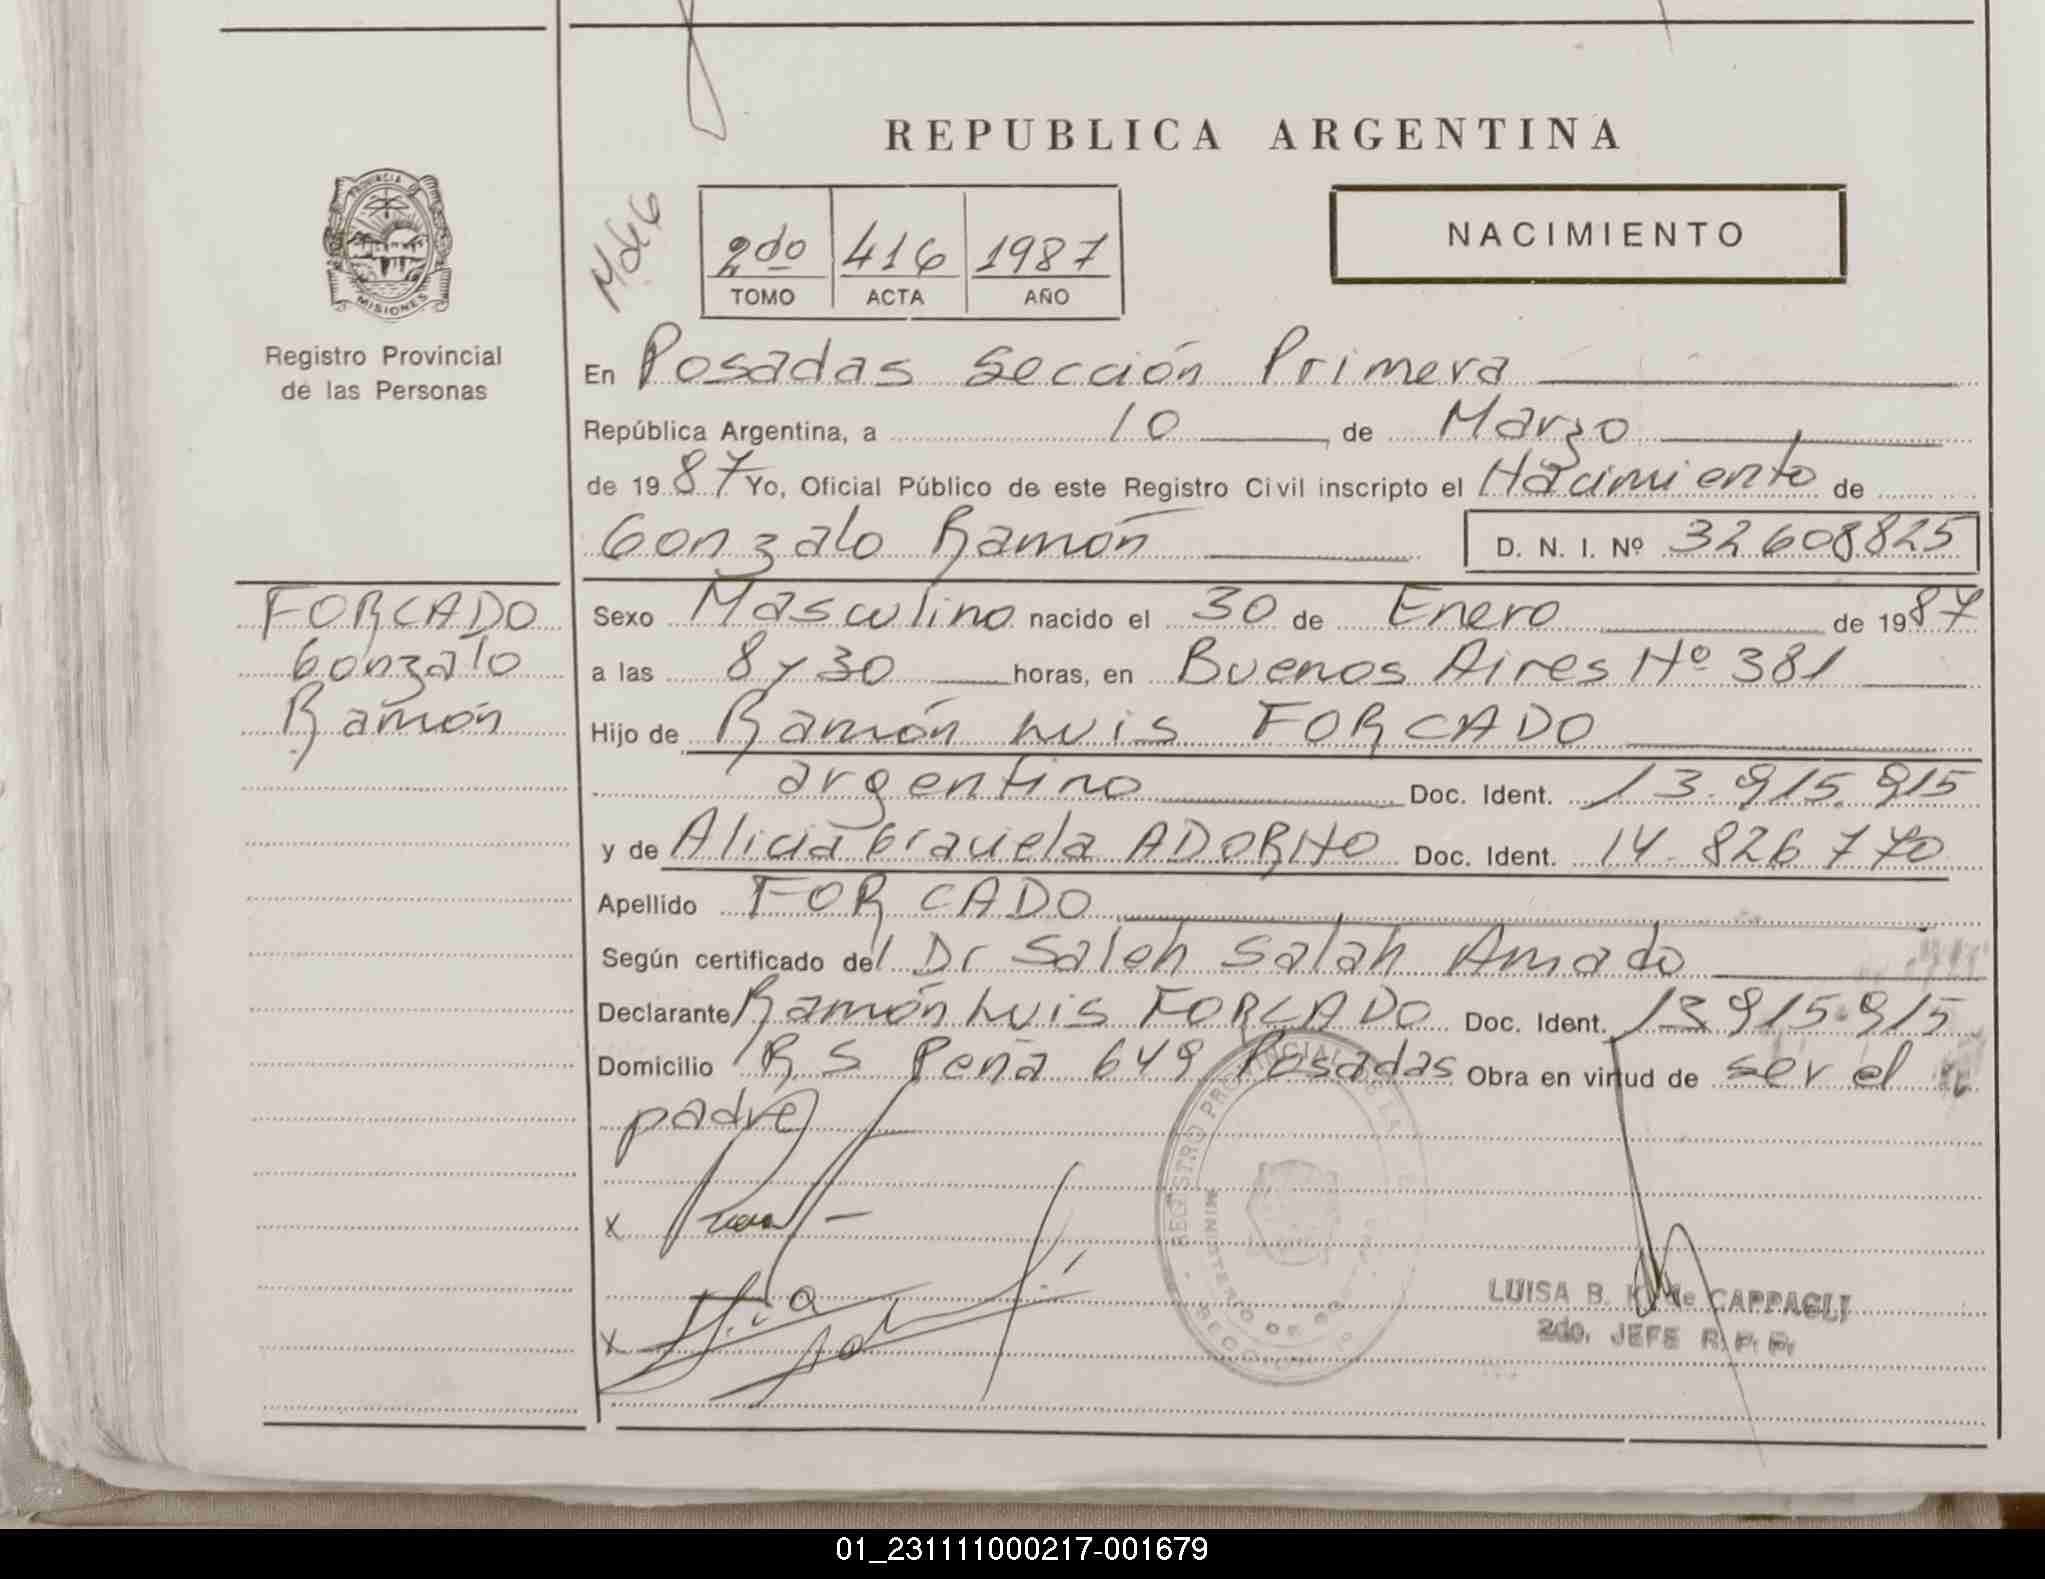 REPUBLICA ARGENTINA
PROVINCIA
MISIONES
Registro Provincial
de las Personas
2do 416 1987
TOMO ACTA AÑO
NACIMIENTO
En Posadas Sección Primera
República Argentina, a 10 de Marzo
de 1987 Yo, Oficial Público de este Registro Civil inscripto el Nacimiento de
Gonzalo Ramón D. N. I. Nº 32608825
FORCADO
Gonzalo
Ramón
Sexo Masculino nacido el 30 de Enero de 1987
a las 8 y 30 horas, en Buenos Aires Nº 381
Hijo de Ramón Luis FORCADO
argentino Doc. Ident. 13.915.915
y de Alicia Graciela ADORNO Doc. Ident. 14.826.770
Apellido FORCADO
Según certificado del Dr Saleh Salah Amado
Declarante Ramón Luis FORCADO Doc. Ident. 13.915.915
Domicilio R S Peña 649 Posadas Obra en virtud de ser el
padre
x
x
LUISA B. de CAPPAGLI
2do. JEFE R. P. P.
01_231111000217-001679